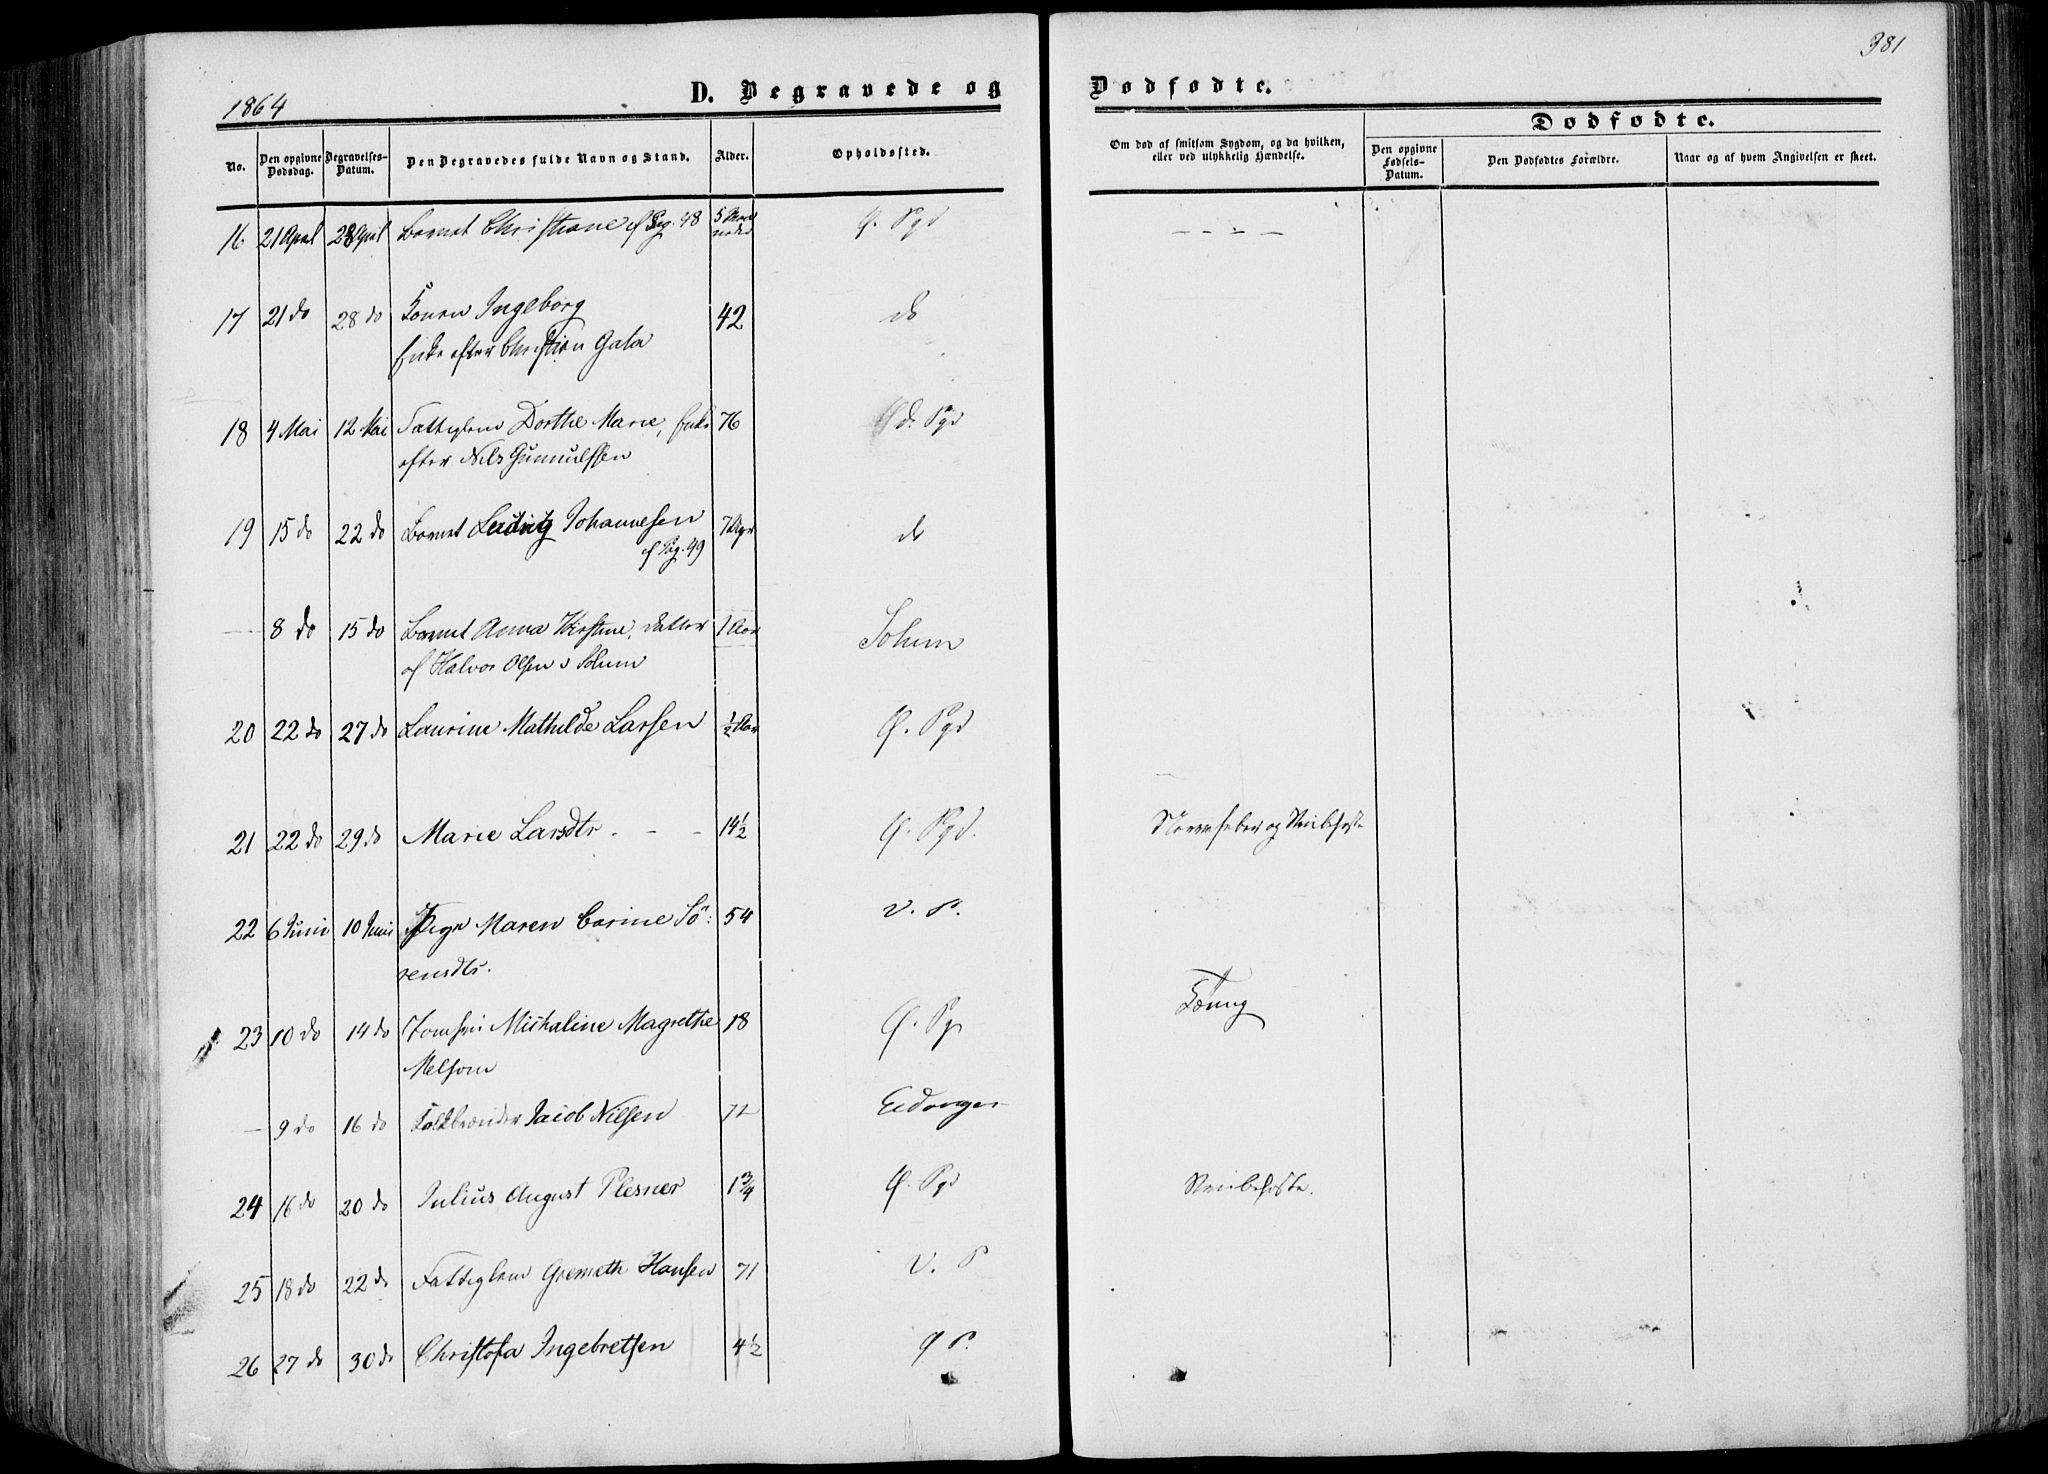 381
1864
D. Begravede og Dødfødte.
No.
Den opgivne Dødsdag.
Begravelses-Datum.
Den Begravedes fulde Navn og Stand.
Alder.
Opholdssted.
Om død af smitsom Sygdom, og da hvilken, eller ved ulykkelig Hændelse.
Dødfødte.
Den opgivne Fødsels-Datum.
Den Dødfødtes Forældre.
Naar og af hvem Angivelsen er skeet.
16 21 April 28 April Barnet Christiane cf Pag. 48 5 Maaneder Ø. Pgd
17 21 do 28 do Konen Ingeborg 42 do
Enke efter Christian Gata
18 4 Mai 12 Mai Fattiglem Dorthe Marie, Enke 76 Ø. Pgd
efter Nils Gunnulfsen
19 15 do 22 do Barnet Ludvig Johannesen 7 Uger do
cf Pag. 49
— 8 do 15 do Barnet Anna Kirstine, datter 1 Aar Solum
af Halvor Olsen i Solum
20 22 do 27 do Laurine Mathilde Larsen ½ Aar Ø. Pgd
21 22 do 29 do Marie Larsdtr. - - 14½ Ø. Pgd. Nervefeber og Strubehoste
22 6 Juni 10 Juni Pige Maren Carine Sö: 54 V. P.
rensdtr.
23 10 do 14 do Jomfru Michaline Magrethe 18 Ø. Pg
Melsom
— 9 do 16 do Jacob Nilsen 72 Eidanger
24 16 do 20 do Julius August Plesner 1¾ Ø. Pgd Strubehoste.
25 18 do 22 do Fattiglem Hansen 71 V. P
26 27 do 30 do Christofa Ingebretsen 4½ Ø P.